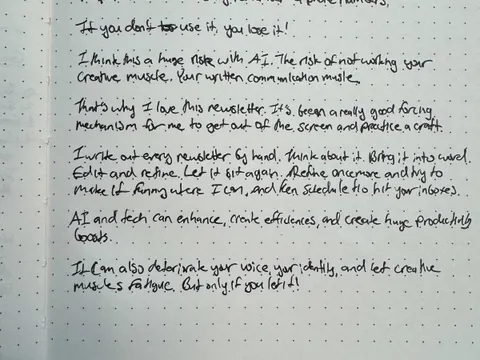 If you don't use it, you lose it!
I think this a huge risk with AI. The risk of not working your
creative muscle. Your written communication muscle.
That's why I love this newsletter. It's been a really good forcing
mechanism for me to get out of the screen and practice a craft.
I write out every newsletter by hand. Think about it. Bring it into word.
Edit and refine. Let it sit again. Refine once more and try to
make it funny where I can, and then schedule to hit your inboxes.
AI and tech can enhance, create efficiences, and create huge productivity
boosts.
It can also deteriorate your voice, your identity, and let creative
muscles fatigue. But only if you let it!